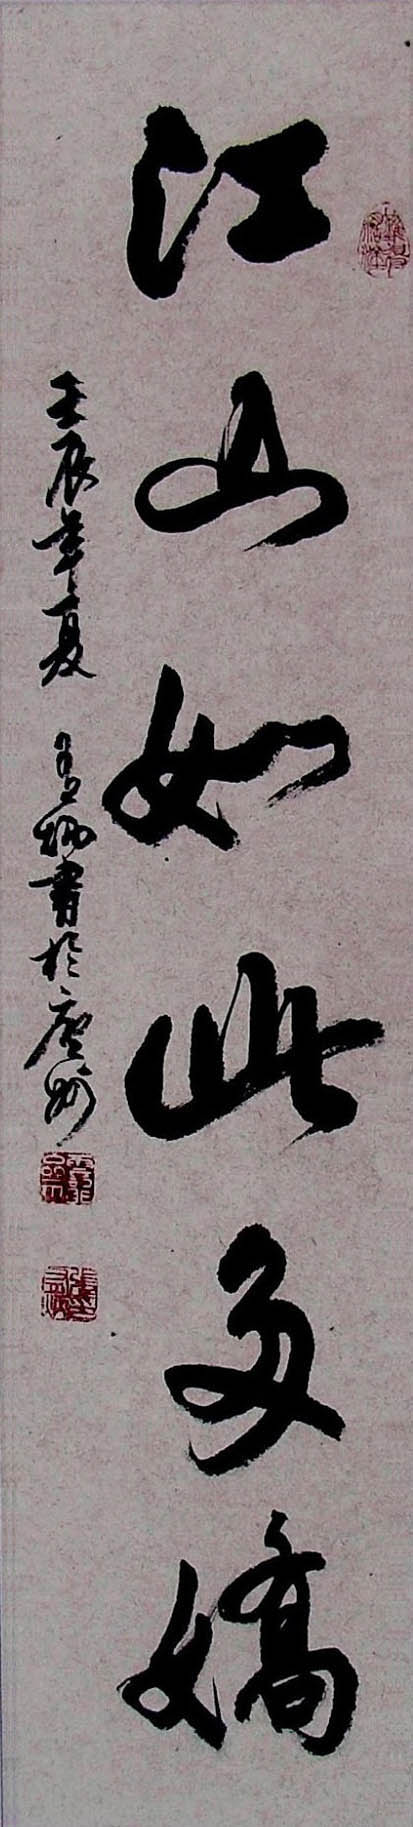 江山如此多嬌
壬辰年夏 有炳書於廣州